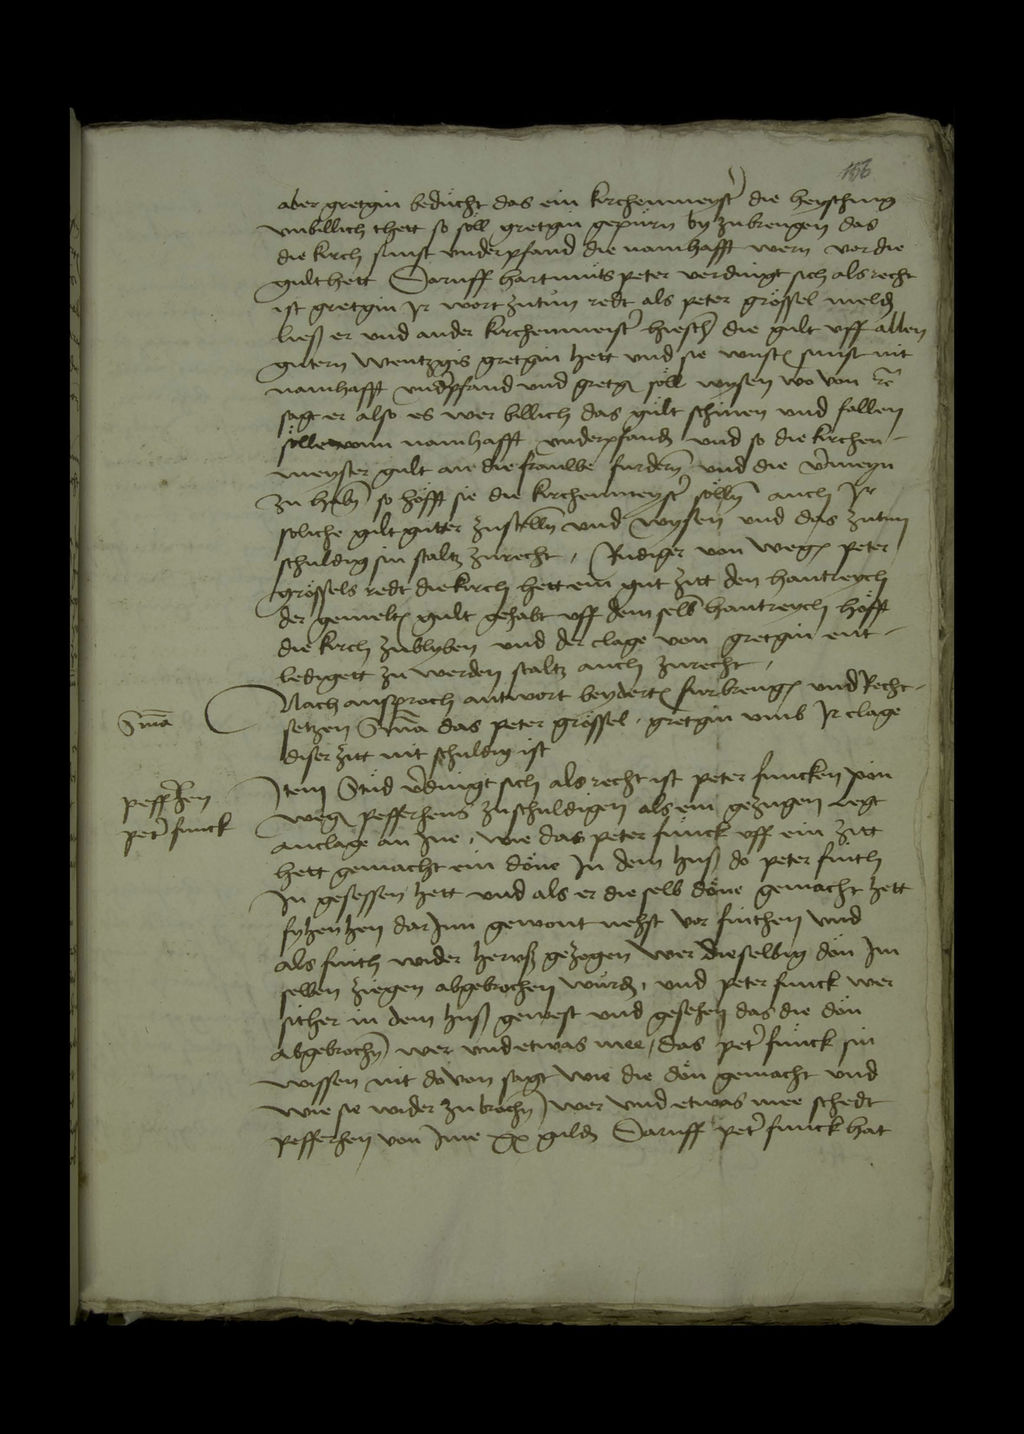 156
aber gretgin beducht das ein kirchenmeyst(er) die heyschung
vnbillich thett so soll gretgin gepurn by zubrengen das
die kirch sunst vnderpfand die namhafft wern vor die
gult hett Daruff hartmuts peter verdingt sich als recht
ist gretgin Ir wort zutun redt als peter grössel meld(e)
ließ er und ander kirchenmeist(er) hiesch(en) die gult uff allen
gutern Wentzgis gretgin hett und sie wust sunst nit
namhafft und(er)pfand und gretg(in) söll wysen wo von
sag er also es wer billich das gult schinen und fallen
solle vom namhafft underpfand(e) und so die kirchen-
meyster gult an die frawe furdern und die v(er)meyn
zu hab(e)n so höfft sie die kirchenmeyst(er) söll(e)n auch Ir
soliche gult gutter zustell(e)n und wysen und das zutun
schuldig sin staltz zurecht, Rudiger von weg(en) peter
grössels redt die kirch hett ein gut zitt den hantreych
der gemelt(en) gult gehabt uff dem selb(e)n hantreych höfft
die kirch zublyben und der clage von gretgin ent-
ledigett zu werden staltz auch zurecht,
Nach ansproch antwort beydert(eil) furbreng(en) und Recht-
S(ente)n(tia)
setzen S(ente)n(tia) das peter grössel gretgin umb Ir clage
diser zitt nit schuldig ist
peffer hen
pet(er) funck
Item Stud v(er)dingt sich als recht ist peter funcken von
weg(en) pefferhens zuschuldigen als ein gezugen Legt
anclage an Ine, wie das peter funck uff ein zitt
hett gemacht ein döne In dem huß do peter fiith
In gesessen hett und als er die selb döne gemacht hett
syhen hen dar Inn gewont nehst vor fiithen und
als fiith wider heruß gezogen wer die selbig dön Im
selben ziegen abgebrochen wurd(en), und peter funck wer
sither in dem huß gewest und gesehen das die dön
abgebroch(e)n wer und etwas mee, das pet(er) funck sin
wissen nit do von sagt wie die dön gemacht und
wie sie wider zubroch(e)n wer und etwas mee schedt
pefferhen von Ime xx guld(en) Daruff pet(er) funck hat